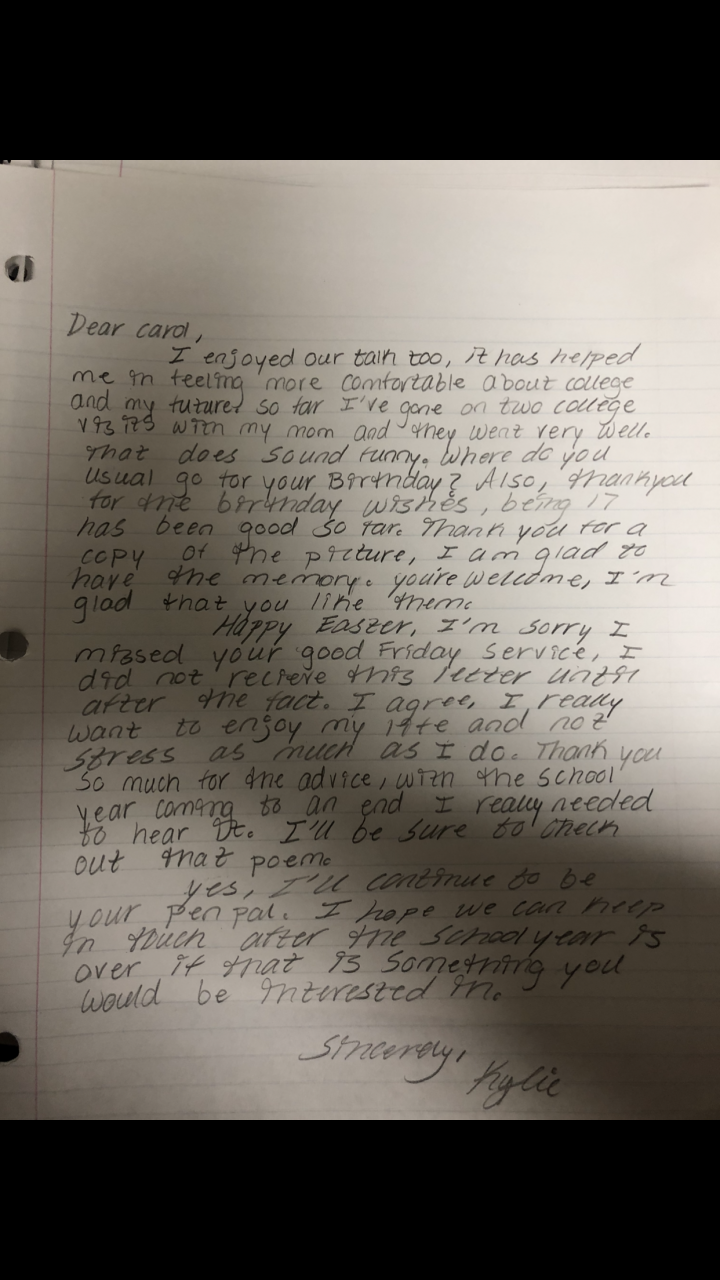 Dear carol,
I enjoyed our talk too, it has helped
me in feeling more comfortable about college
and my future! so far I've gone on two college
visits with my mom and they went very well.
That does sound funny. Where do you
usual go for your Birthday? Also, thankyou
for the birthday wishes, being 17
has been good so far. Thank you for a
copy of the picture, I am glad to
have the memory. you're welcome, I'm
glad that you like them.
Happy Easter, I'm sorry I
missed your good Friday service, I
did not recieve this letter until
after the fact. I agree, I really
want to enjoy my life and not
stress as much as I do. Thank you
so much for the advice, with the school
year coming to an end I really needed
to hear it. I'll be sure to check
out that poem.
yes, I'll continue to be
your pen pal. I hope we can keep
in touch after the school year is
over if that is something you
would be interested in.
Sincerely,
Kylie